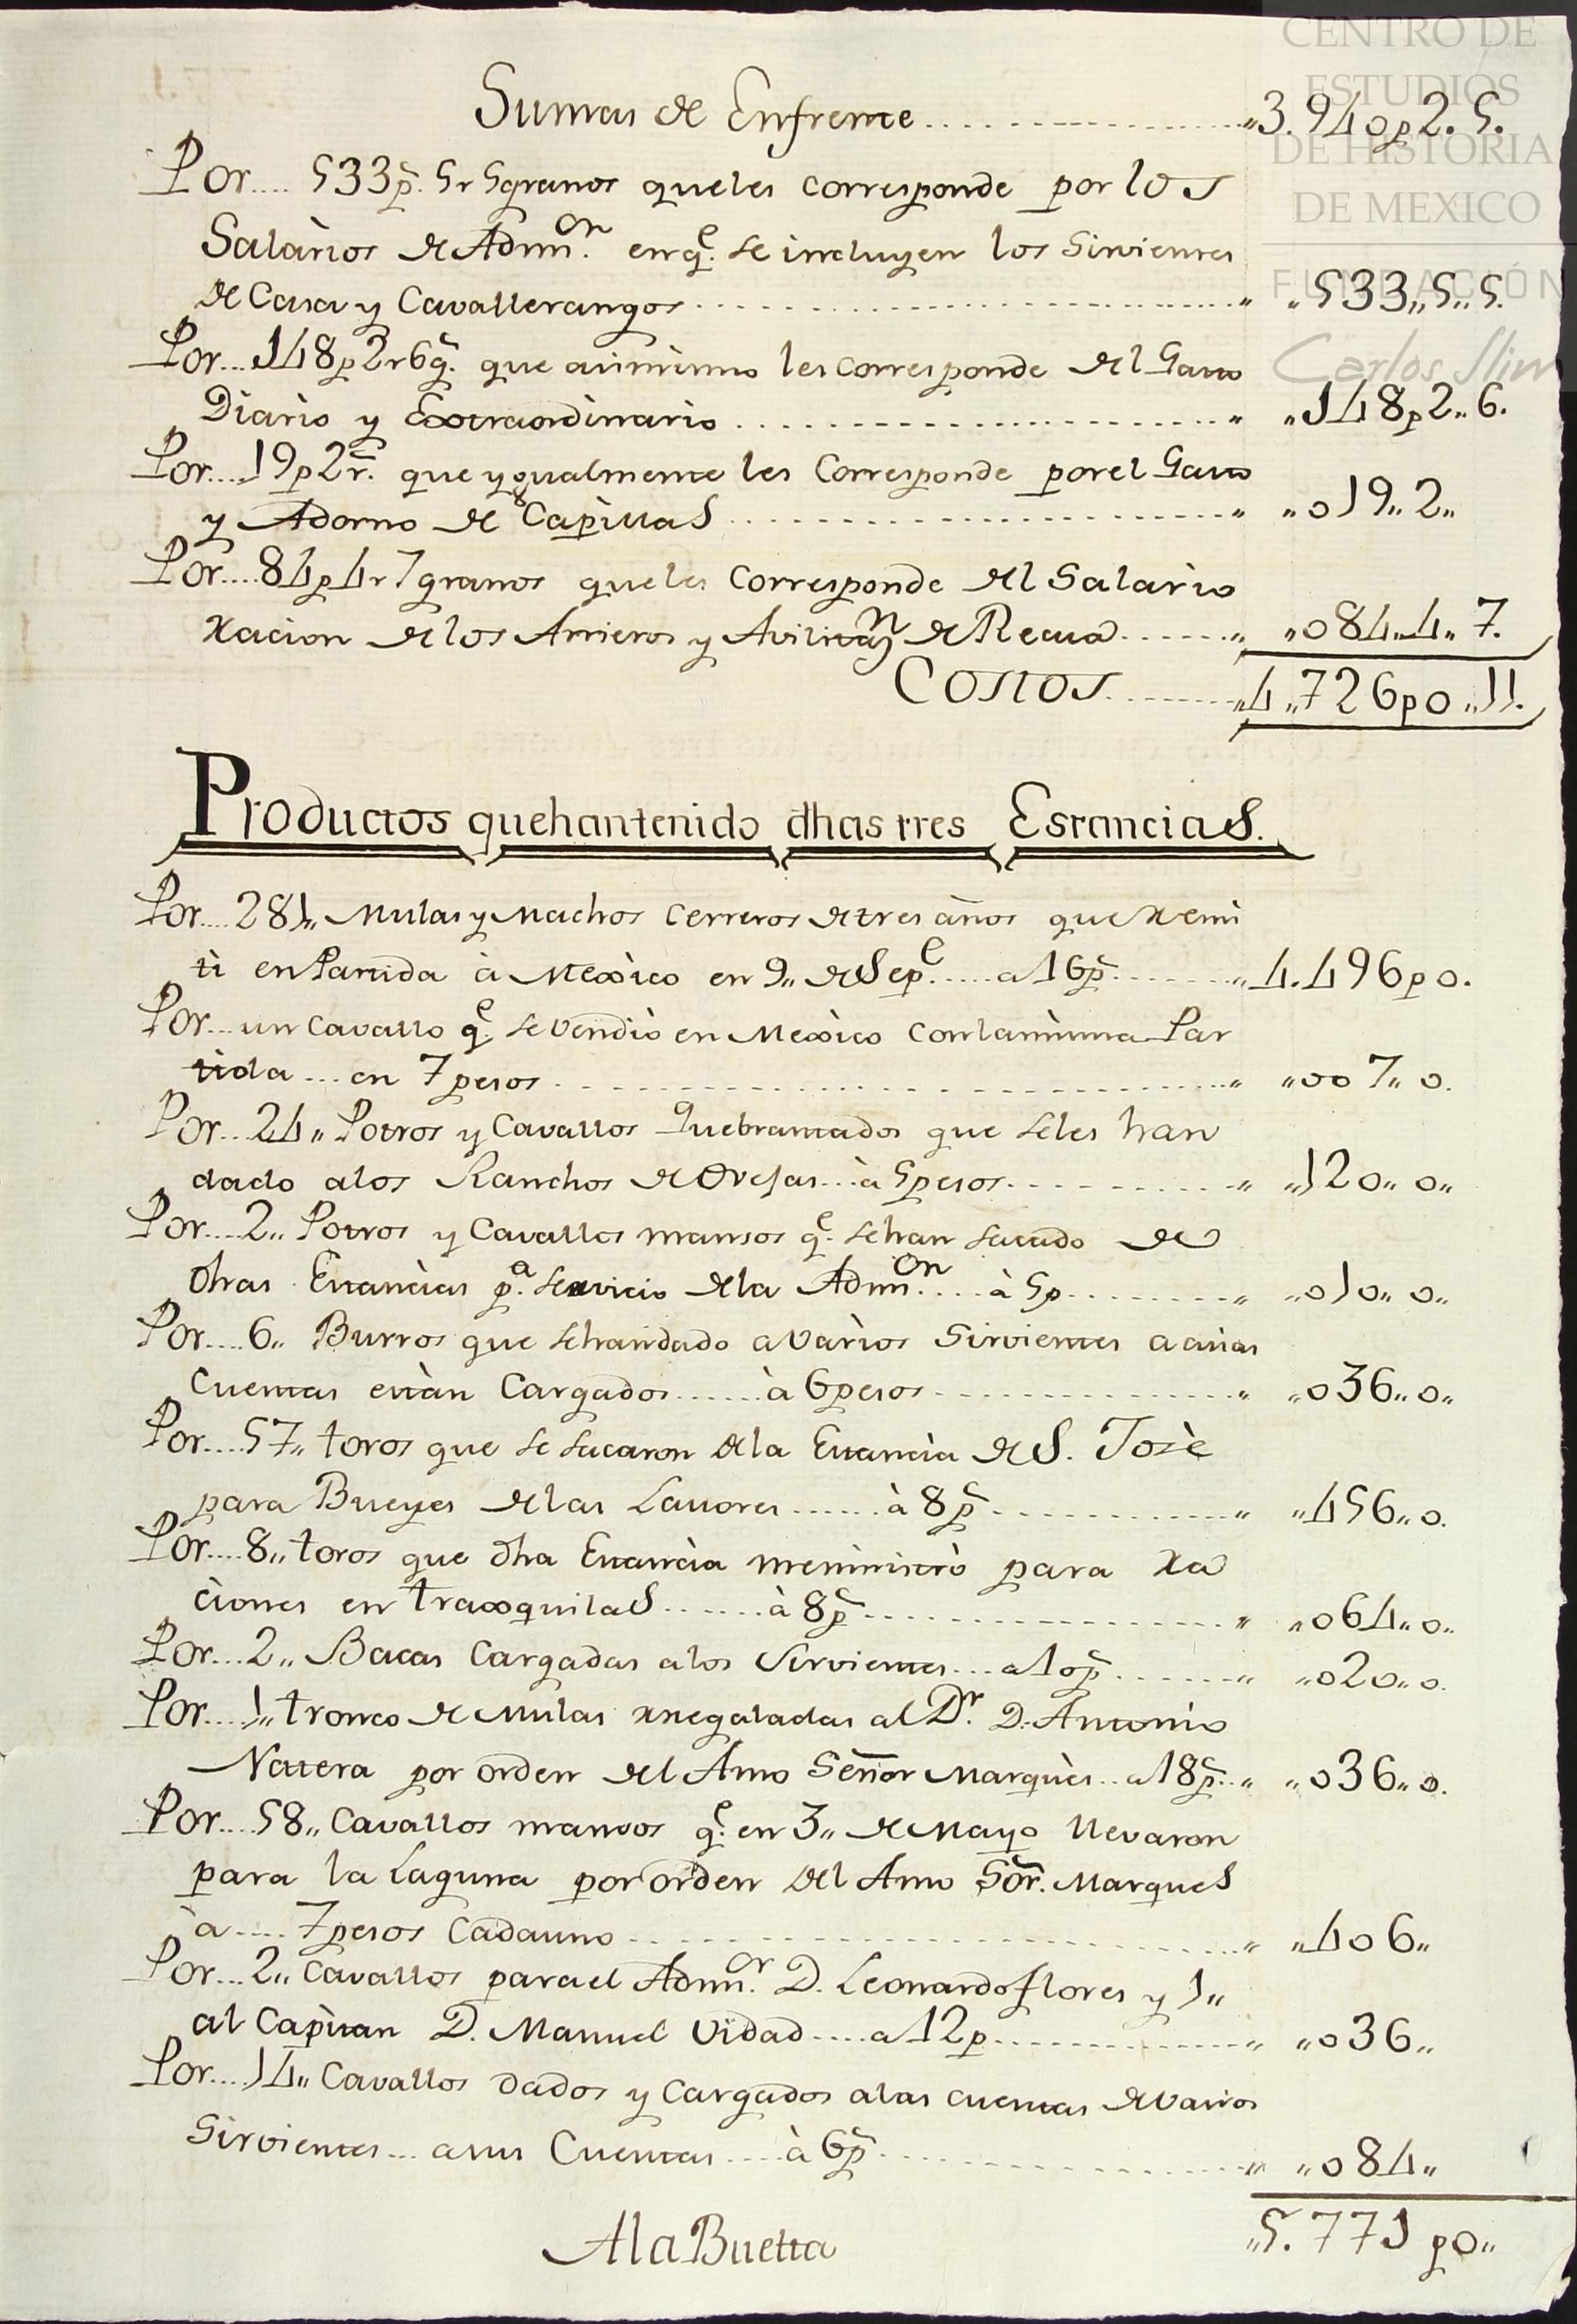 CENTRO DE
ESTUDIOS
DE HISTORIA
DE MEXICO
FUNDACIÓN
Carlos Slim
Sumas de Enfrente.................. „3.940p2.5.
Por.... 533p.s 5r 5granos queles corresponde por los
Salàrios de Admon. enqe. se incluyen los Sirvientes
de Casa y Cavallerangos.................. „ „533„5„5.
Por...148p2r6g.s que asimìsmo les corresponde del Gasto
Diàrio y Extraordinàrio.................. „ „148p2„6.
Por....19p2r.s que ygualmente les Corresponde porel Gasto
y Adorno de Capìllas.................. „ „019„2„
Por....84p4r7granos queles Corresponde del Salàrio
xacion delos Arrieros y Avilitazn de Recua...... „ „084„4„7.
Costos........ „4„726po„11.
Productos quehantenido dhas tres Estancias.
Por....281„ Mulas y Machos Cerreros detres años que xemi
tì enPartida à Mexico en 9„ de Sepe.....a16p.s........ „4.496po.
Por...un Cavallo qe. seVendiò en Mexìco Conlamìsma Par
tida...en 7pesos.................. „ „007„o.
Por...24„ Potros y Cavallos Quebrantados que seles han
dado alos Ranchos de Ovejas...à 5pesos.......... „ „120„o„
Por....2„ Potros y Cavallos mansos qe. sehan sacado de
dhas Estancias pa. Servicio dela Admon.....à 5p.......... „ „010„o„
Por....6„ Burros que sehandado aVàrios Sirvientes acuias
Cuentas estàn Cargados......à 6pesos.................. „ „036„o„
Por....57„ toros que se sacaron dela Estancia de S. Josè
para Bueyes delas Lavores......à 8p.s............ „ „456„o.
Por....8„ toros que dha Estancia meministrò para xa
ciones en traxquilas.......à 8p.s.................. „ „064„o„
Por...2„ Bacas Cargadas alos Sirvientes...a10p.s........ „ „020„o.
Por....1„ tronco de Mulas xregaladas al Dr. D. Antonio
Natera por orden del Amo Señor Marquès..a18p.s.. „ „036„o.
Por....58„ Cavallos mansos qe. en 3„ de Mayo llevaron
para la Laguna por orden del Amo Sor. Marques
à....7pesos Cadauno.................. „ „406„
Por...2„ Cavallos parael Admor. D. Leonardo flores y 1„
al Capitan D. Manuel Vidad....a12p.................. „ „036„
Por....14„ Cavallos dados y Cargados alas cuentas deVarios
Sirvientes...asus Cuentas....à 6p.s.................. „ „084„
AlaBuelta „5.771po„